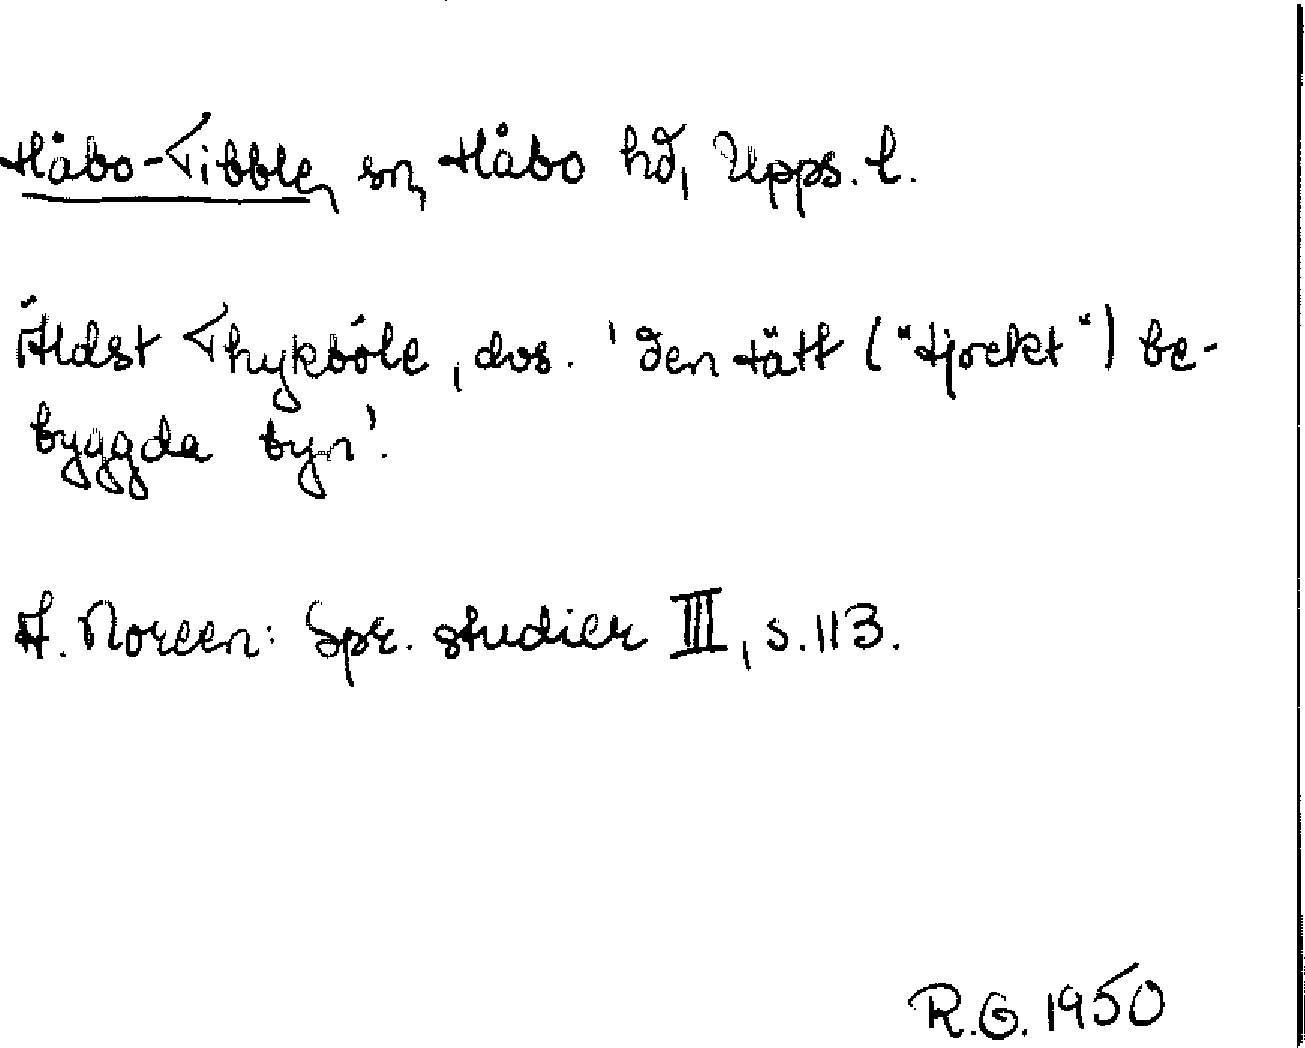 Håbo-Tibble, sn, Håbo hd, Upps. l.
Äldst Thykbóle, dvs. 'den tätt ("tjockt") be-
byggda byn'.
A. Noreen: Spr. studier III, s. 113.
R.G. 1950